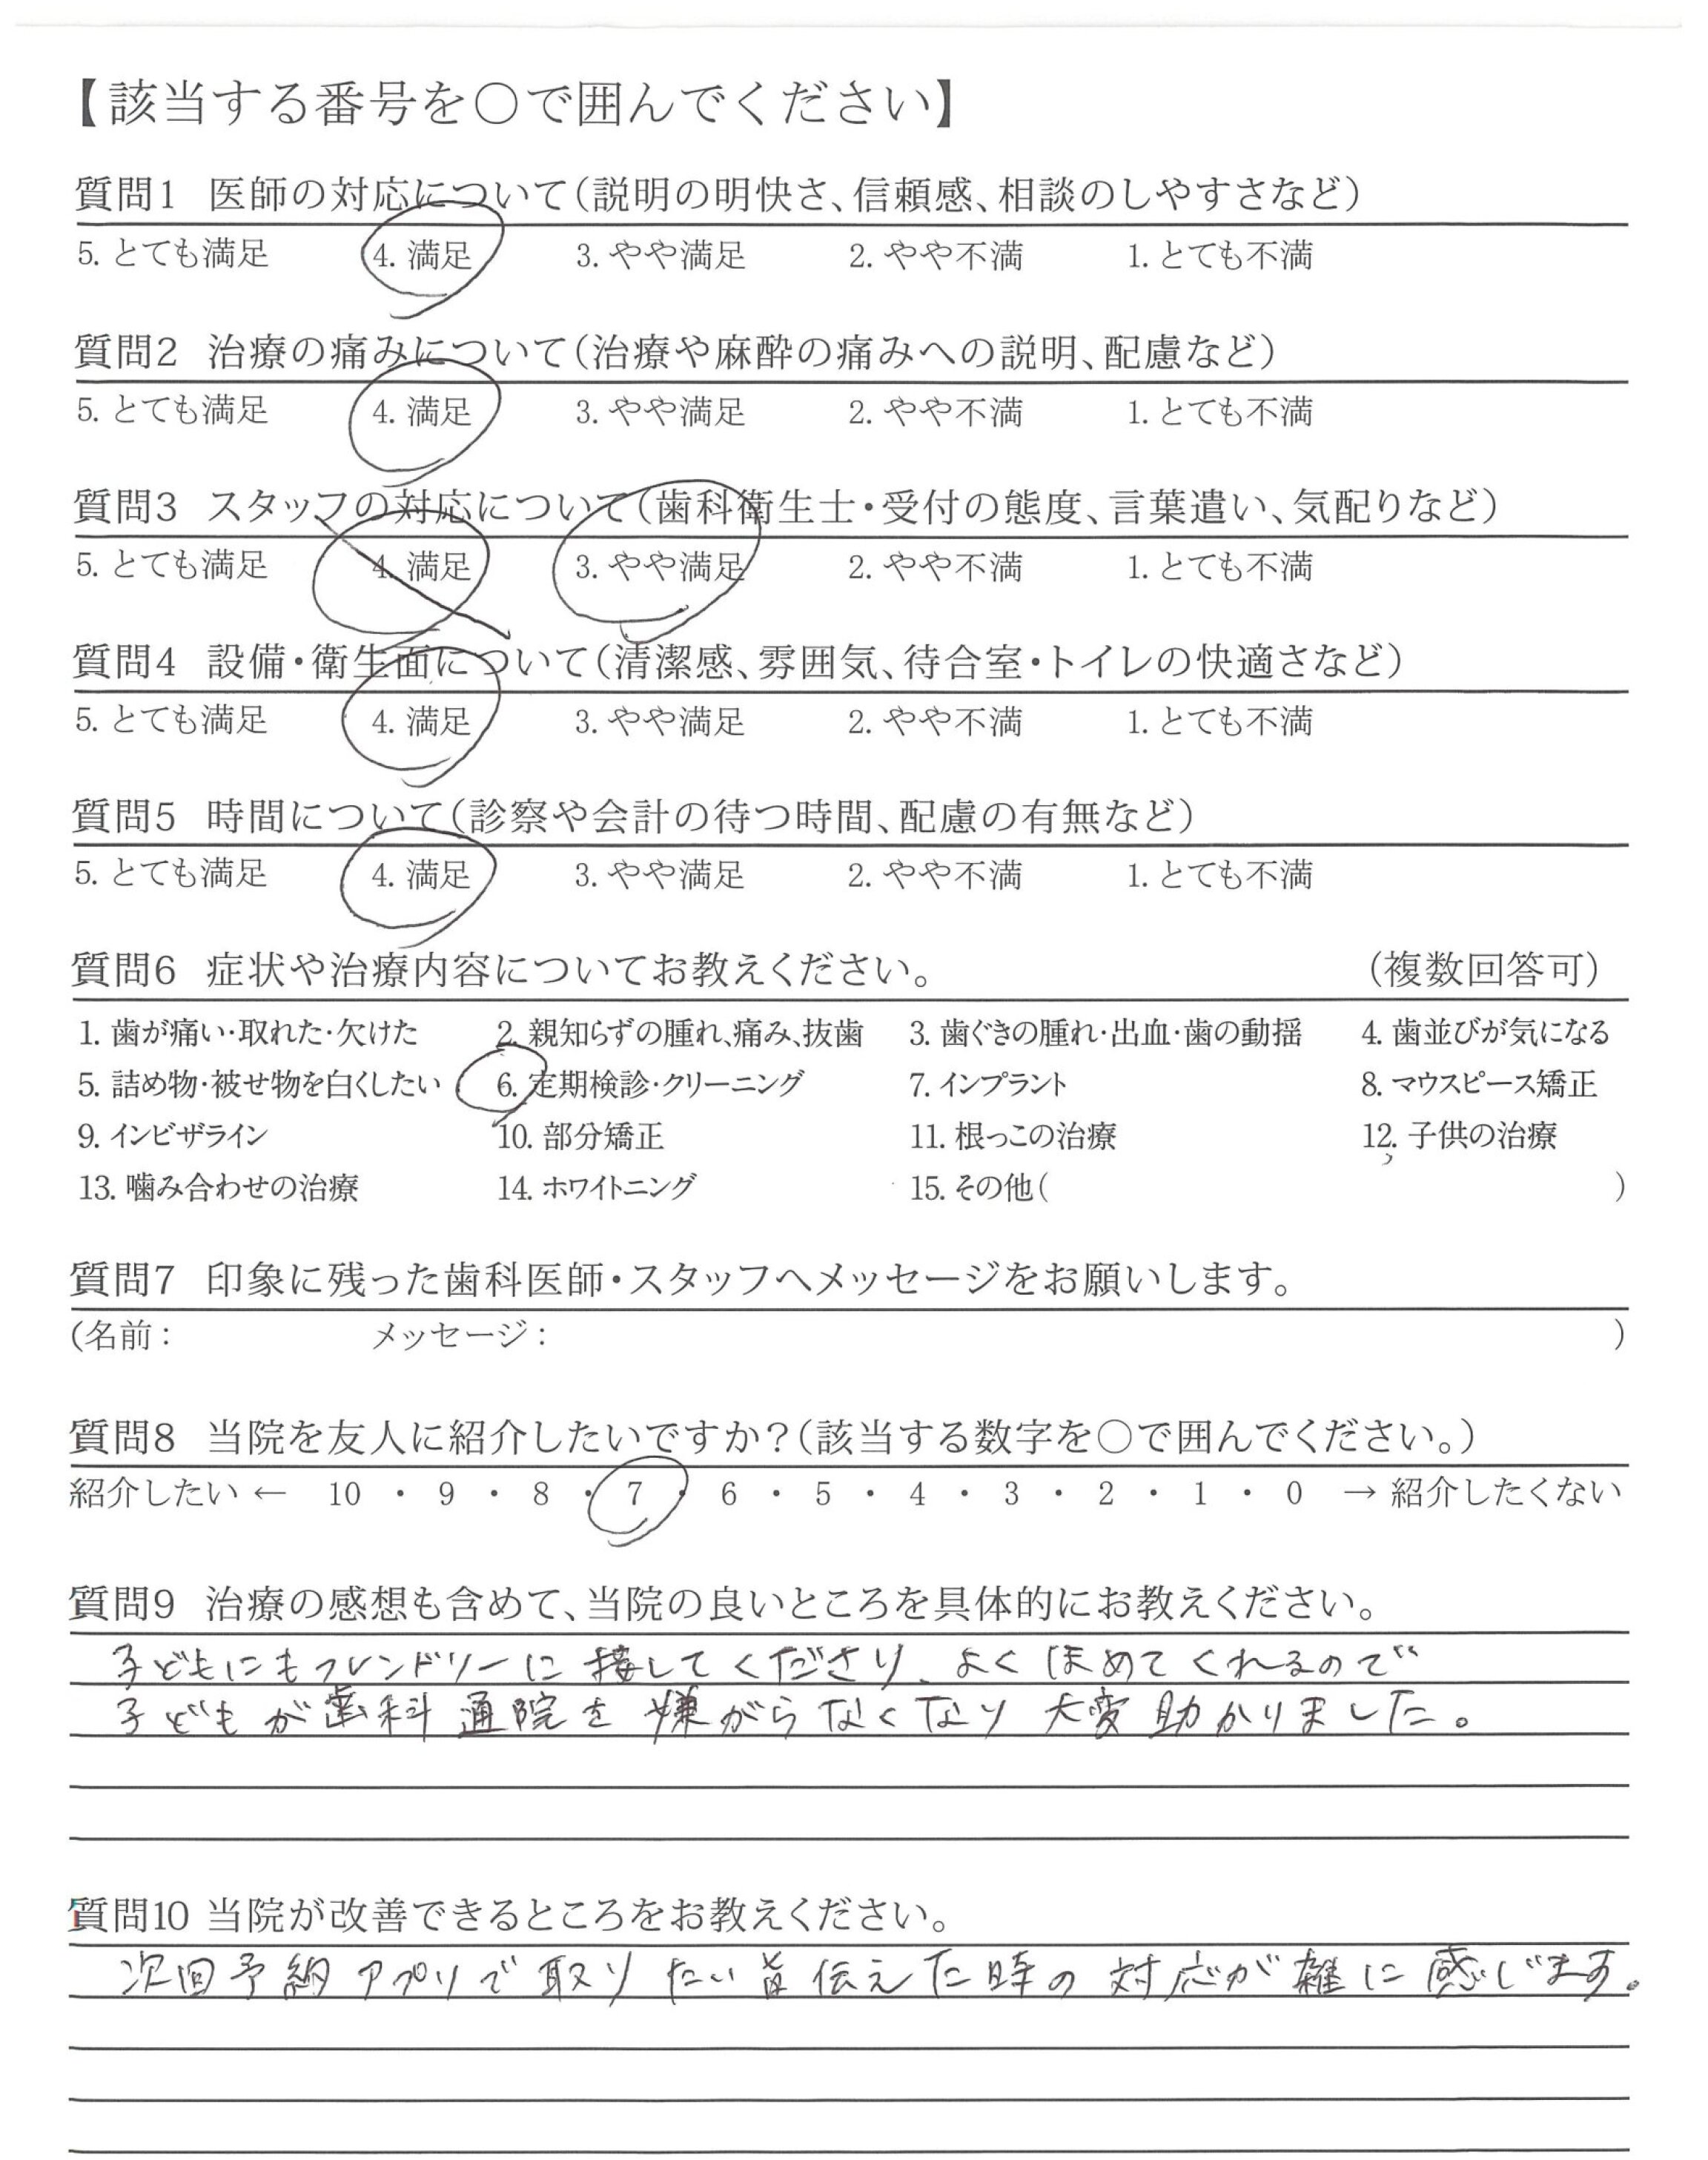 【該当する番号を○で囲んでください】
質問1 医師の対応について(説明の明快さ、信頼感、相談のしやすさなど)
5. とても満足 4. 満足 3. やや満足 2. やや不満 1. とても不満
質問2 治療の痛みについて(治療や麻酔の痛みへの説明、配慮など)
5. とても満足 4. 満足 3. やや満足 2. やや不満 1. とても不満
質問3 スタッフの対応について(歯科衛生士・受付の態度、言葉遣い、気配りなど)
5. とても満足 4. 満足 3. やや満足 2. やや不満 1. とても不満
質問4 設備・衛生面について(清潔感、雰囲気、待合室・トイレの快適さなど)
5. とても満足 4. 満足 3. やや満足 2. やや不満 1. とても不満
質問5 時間について(診察や会計の待つ時間、配慮の有無など)
5. とても満足 4. 満足 3. やや満足 2. やや不満 1. とても不満
質問6 症状や治療内容についてお教えください。 (複数回答可)
1. 歯が痛い・取れた・欠けた 2. 親知らずの腫れ、痛み、抜歯 3. 歯ぐきの腫れ・出血・歯の動揺 4. 歯並びが気になる
5. 詰め物・被せ物を白くしたい 6. 定期検診・クリーニング 7. インプラント 8. マウスピース矯正
9. インビザライン 10. 部分矯正 11. 根っこの治療 12. 子供の治療
13. 噛み合わせの治療 14. ホワイトニング 15. その他( )
質問7 印象に残った歯科医師・スタッフへメッセージをお願いします。
(名前: メッセージ: )
質問8 当院を友人に紹介したいですか?(該当する数字を○で囲んでください。)
紹介したい ← 10 ・ 9 ・ 8 ・ 7 ・ 6 ・ 5 ・ 4 ・ 3 ・ 2 ・ 1 ・ 0 → 紹介したくない
質問9 治療の感想も含めて、当院の良いところを具体的にお教えください。
子どもにもフレンドリーに接してくださり、よくほめてくれるので
子どもが歯科通院を嫌がらなくなり大変助かりました。
質問10 当院が改善できるところをお教えください。
次回予約アプリで取りたい旨伝えた時の対応が雑に感じます。